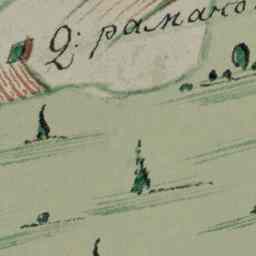 2: рамано